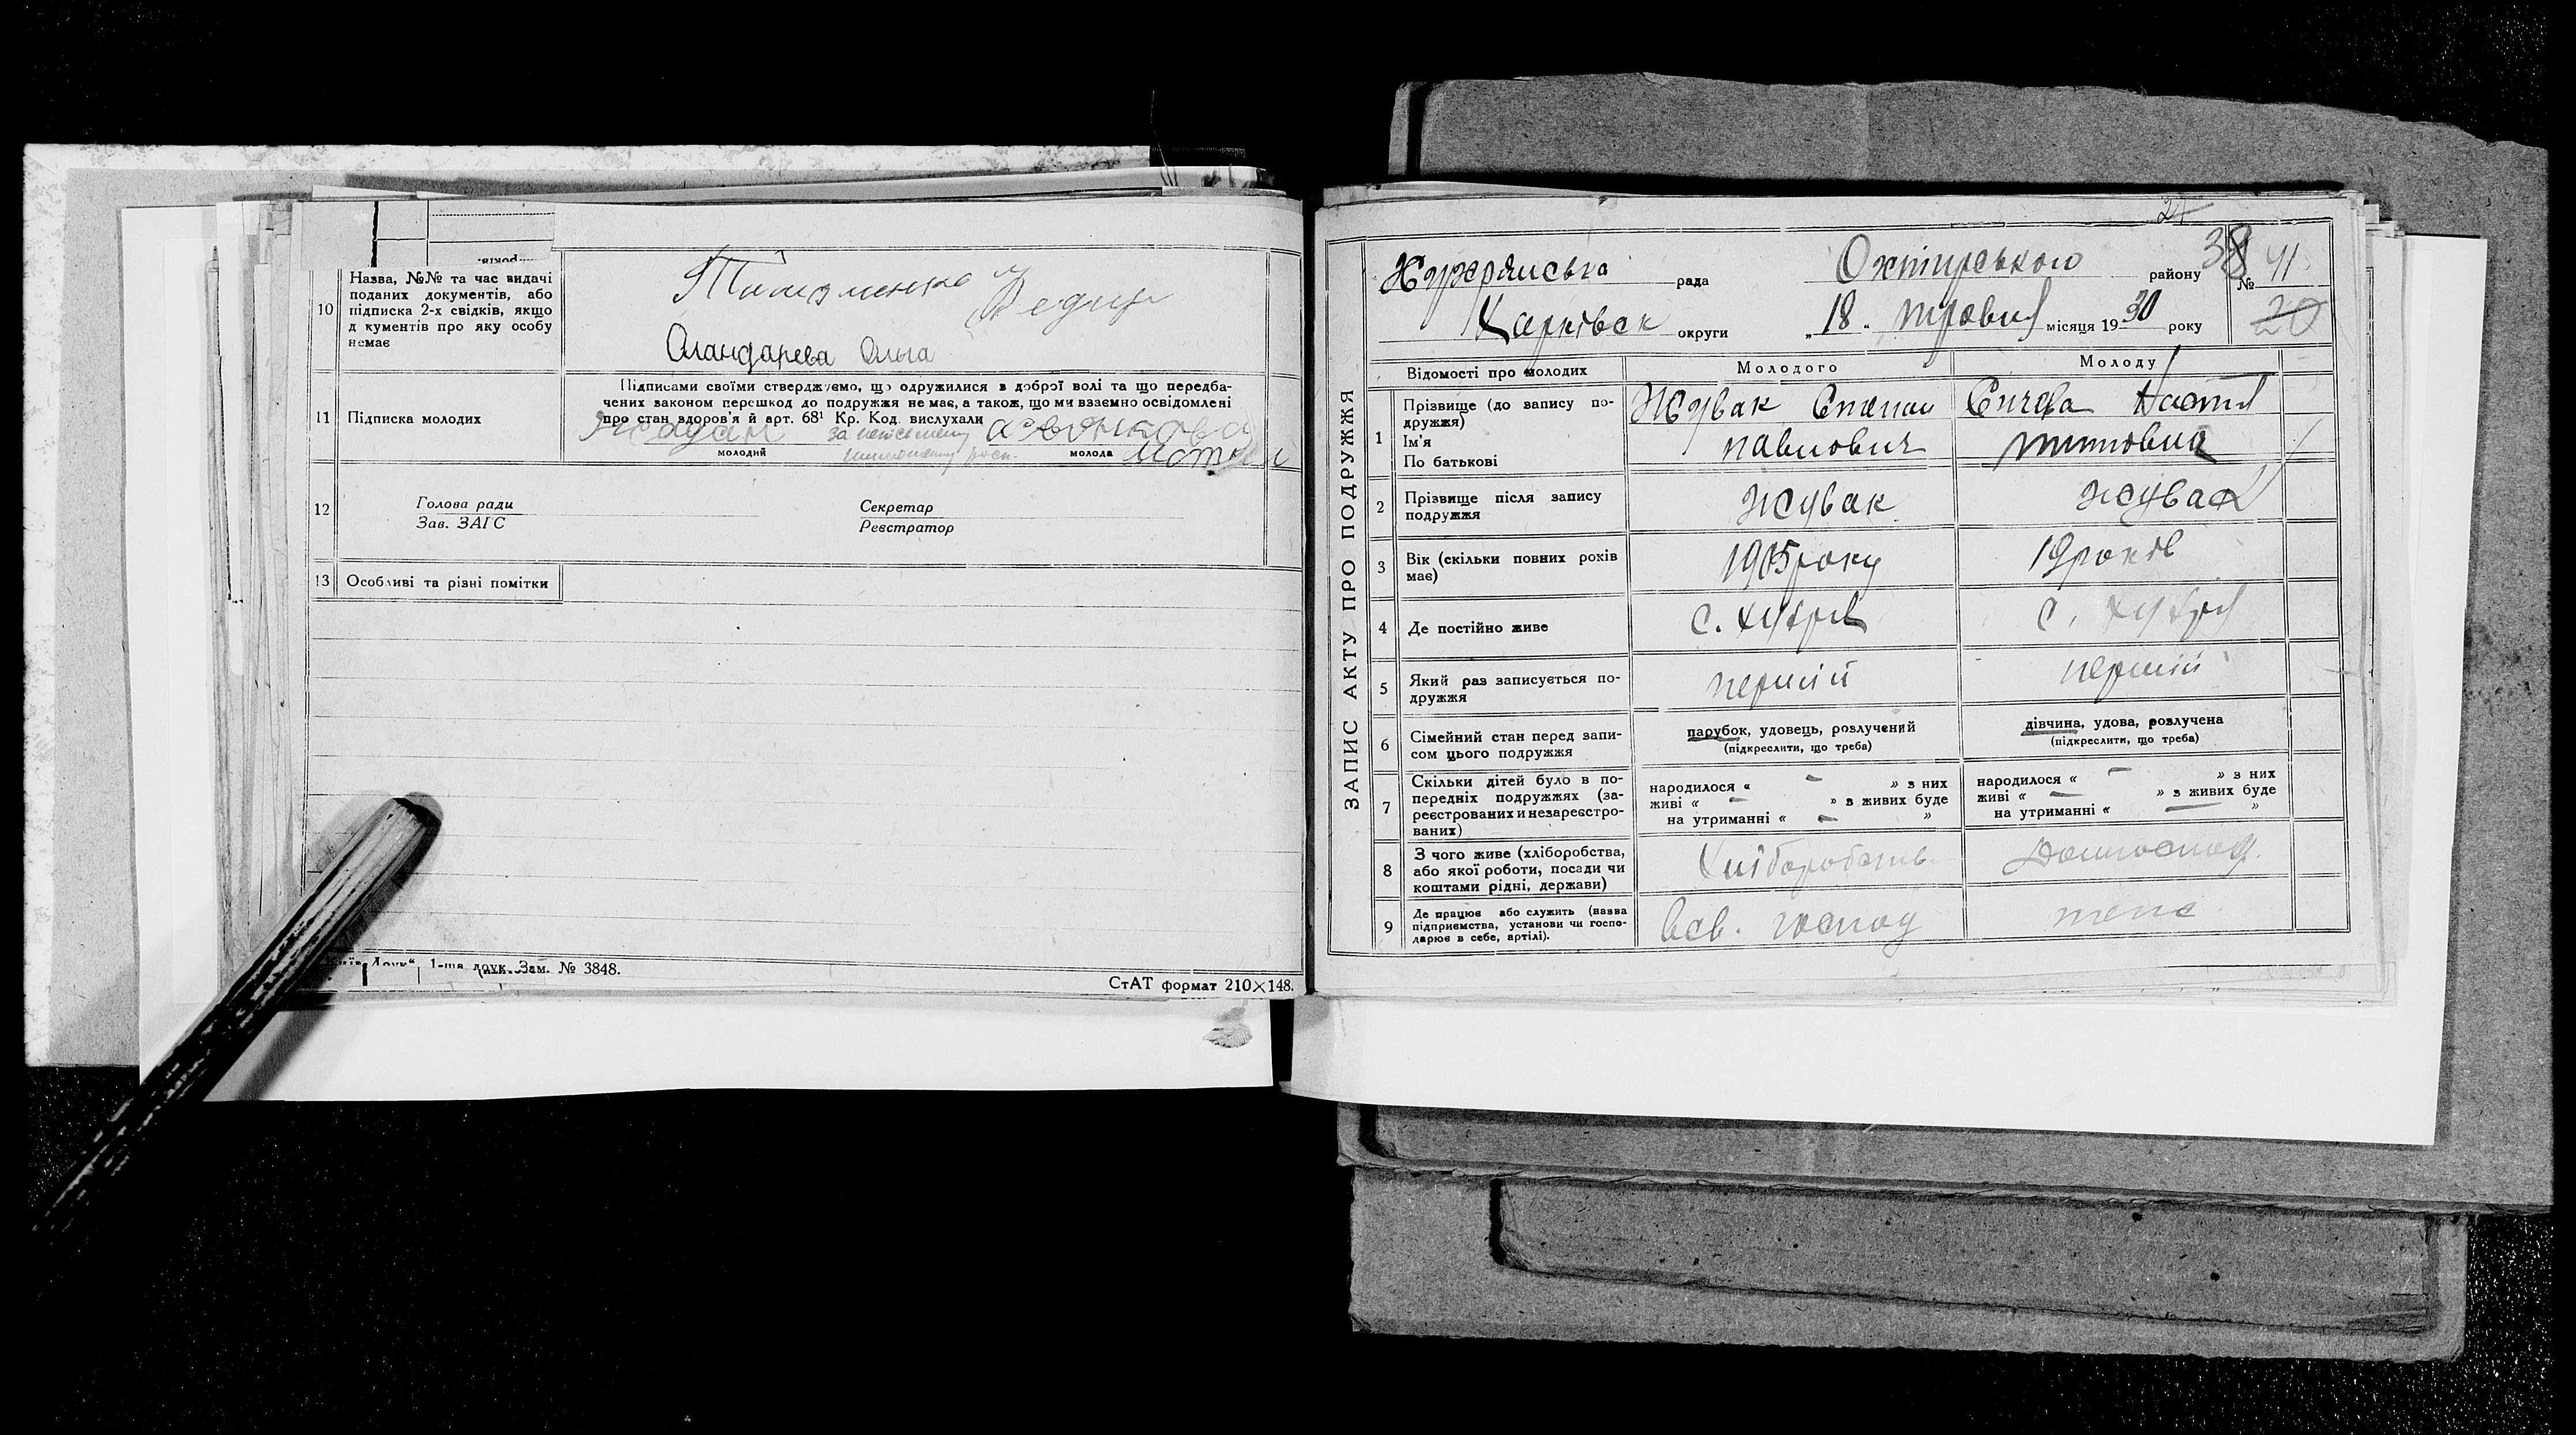 10
Назва, №№ та час видачі
поданих документів, або
підписка 2-х свідків, якщо
д кументів про яку особу
немає
Федир
Оландарева Ольга
11
Підписка молодих
Підписами своїми стверджуємо, що одружилися з доброї волі та що передба-
чених законом перешкод до подружжя не має, а також, що ми взаємно освідомлені
про стан здоров'я й арт. 68¹ Кр. Код. вислухали
молодий
молода
12
Голова ради
Зав. ЗАГС
Секретар
Реєстратор
13
Особливі та різні помітки
1-ша друк. Зам. № 3848.
СтАТ формат 210×148.
ЗАПИС АКТУ ПРО ПОДРУЖЖЯ
27
рада Охтирського району 38 № 41
Харківськ округи „18" травня місяця 1930 року 20
Відомості про молодих
Молодого
Молоду
1
Прізвище (до запису по-
дружжя)
Ім'я
По батькові
Жувак Степан
павлович
Настя
титовна
2
Прізвище після запису
подружжя
жувак
жувак
3
Вік (скільки повних років
має)
1905 року
19 років
4
Де постійно живе
с. хухря
с. хухря
5
Який раз записується по-
дружжя
перший
перший
6
Сімейний стан перед запи-
сом цього подружжя
парубок, удовець, розлучений
(підкреслити, що треба)
дівчина, удова, розлучена
(підкреслити, що треба)
7
Скільки дітей було в по-
передніх подружжях (за-
реєстрованих и незареєстро-
ваних)
народилося « – » з них
живі « – » з живих буде
на утриманні « – »
народилося « – » з них
живі « – » з живих буде
на утриманні « – »
8
З чого живе (хліборобства,
або якої роботи, посади чи
коштами рідні, держави)
Хліборобств
Домгоспод.
9
Де працює або служить (назва
підприємства, установи чи госпо-
дарює в себе, артілі).
господ
теж